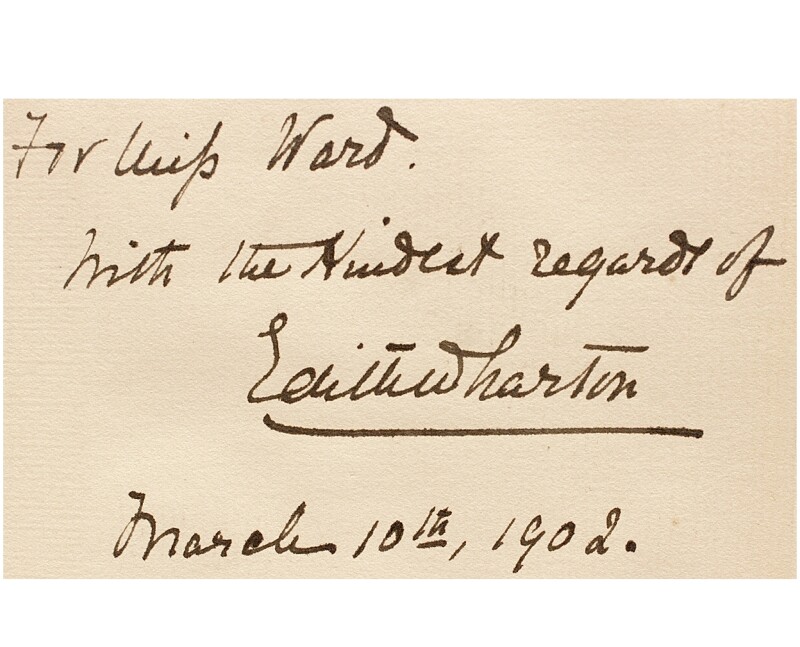 For Miss Ward.
With the kindest regards of
Edith Wharton
March 10th, 1902.